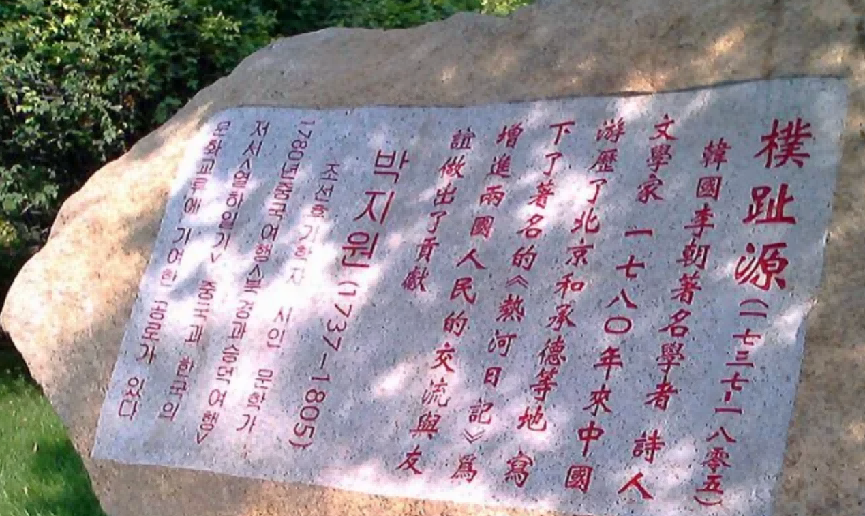 樸趾源(一七三七-一八零五)
韓國李朝著名學者 詩人
文學家 一七八〇年來中國
游歷了北京和承德等地 寫
下了著名的《熱河日記》爲
增進兩國人民的交流與友
誼做出了貢獻
박지원(1737-1805)
조선후기학자 시인 문학가
1780년중국여행<북경과승덕여행>
저서<열하일기> 중국과 한국의
문학교류에 기여한 공로가 있다